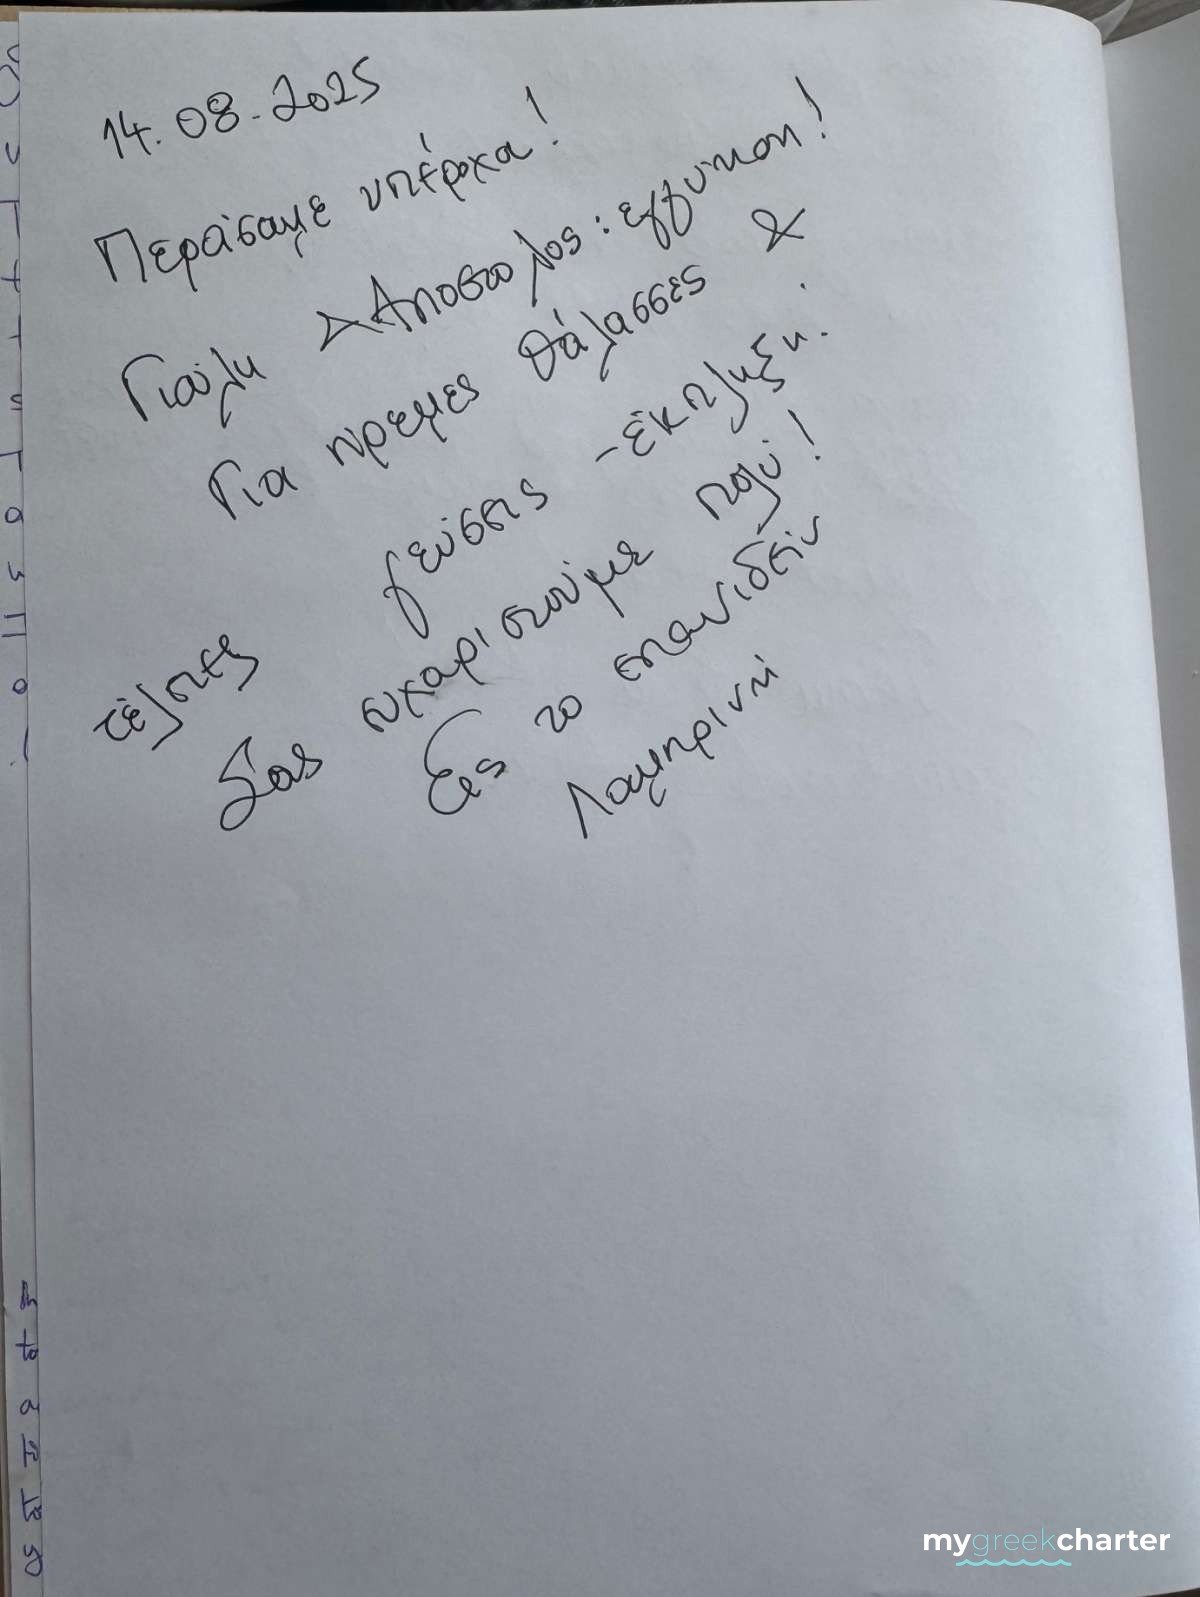 14.08.2025
Περάσαμε υπέροχα!
Γιούλη & Απόστολος: εγγύηση!
Για ήρεμες θάλασσες &
τέλειες γεύσεις - έκπληξη.
Σας ευχαριστούμε πολύ!
Εις το επανιδείν
Λαμπρινή
mygreekcharter